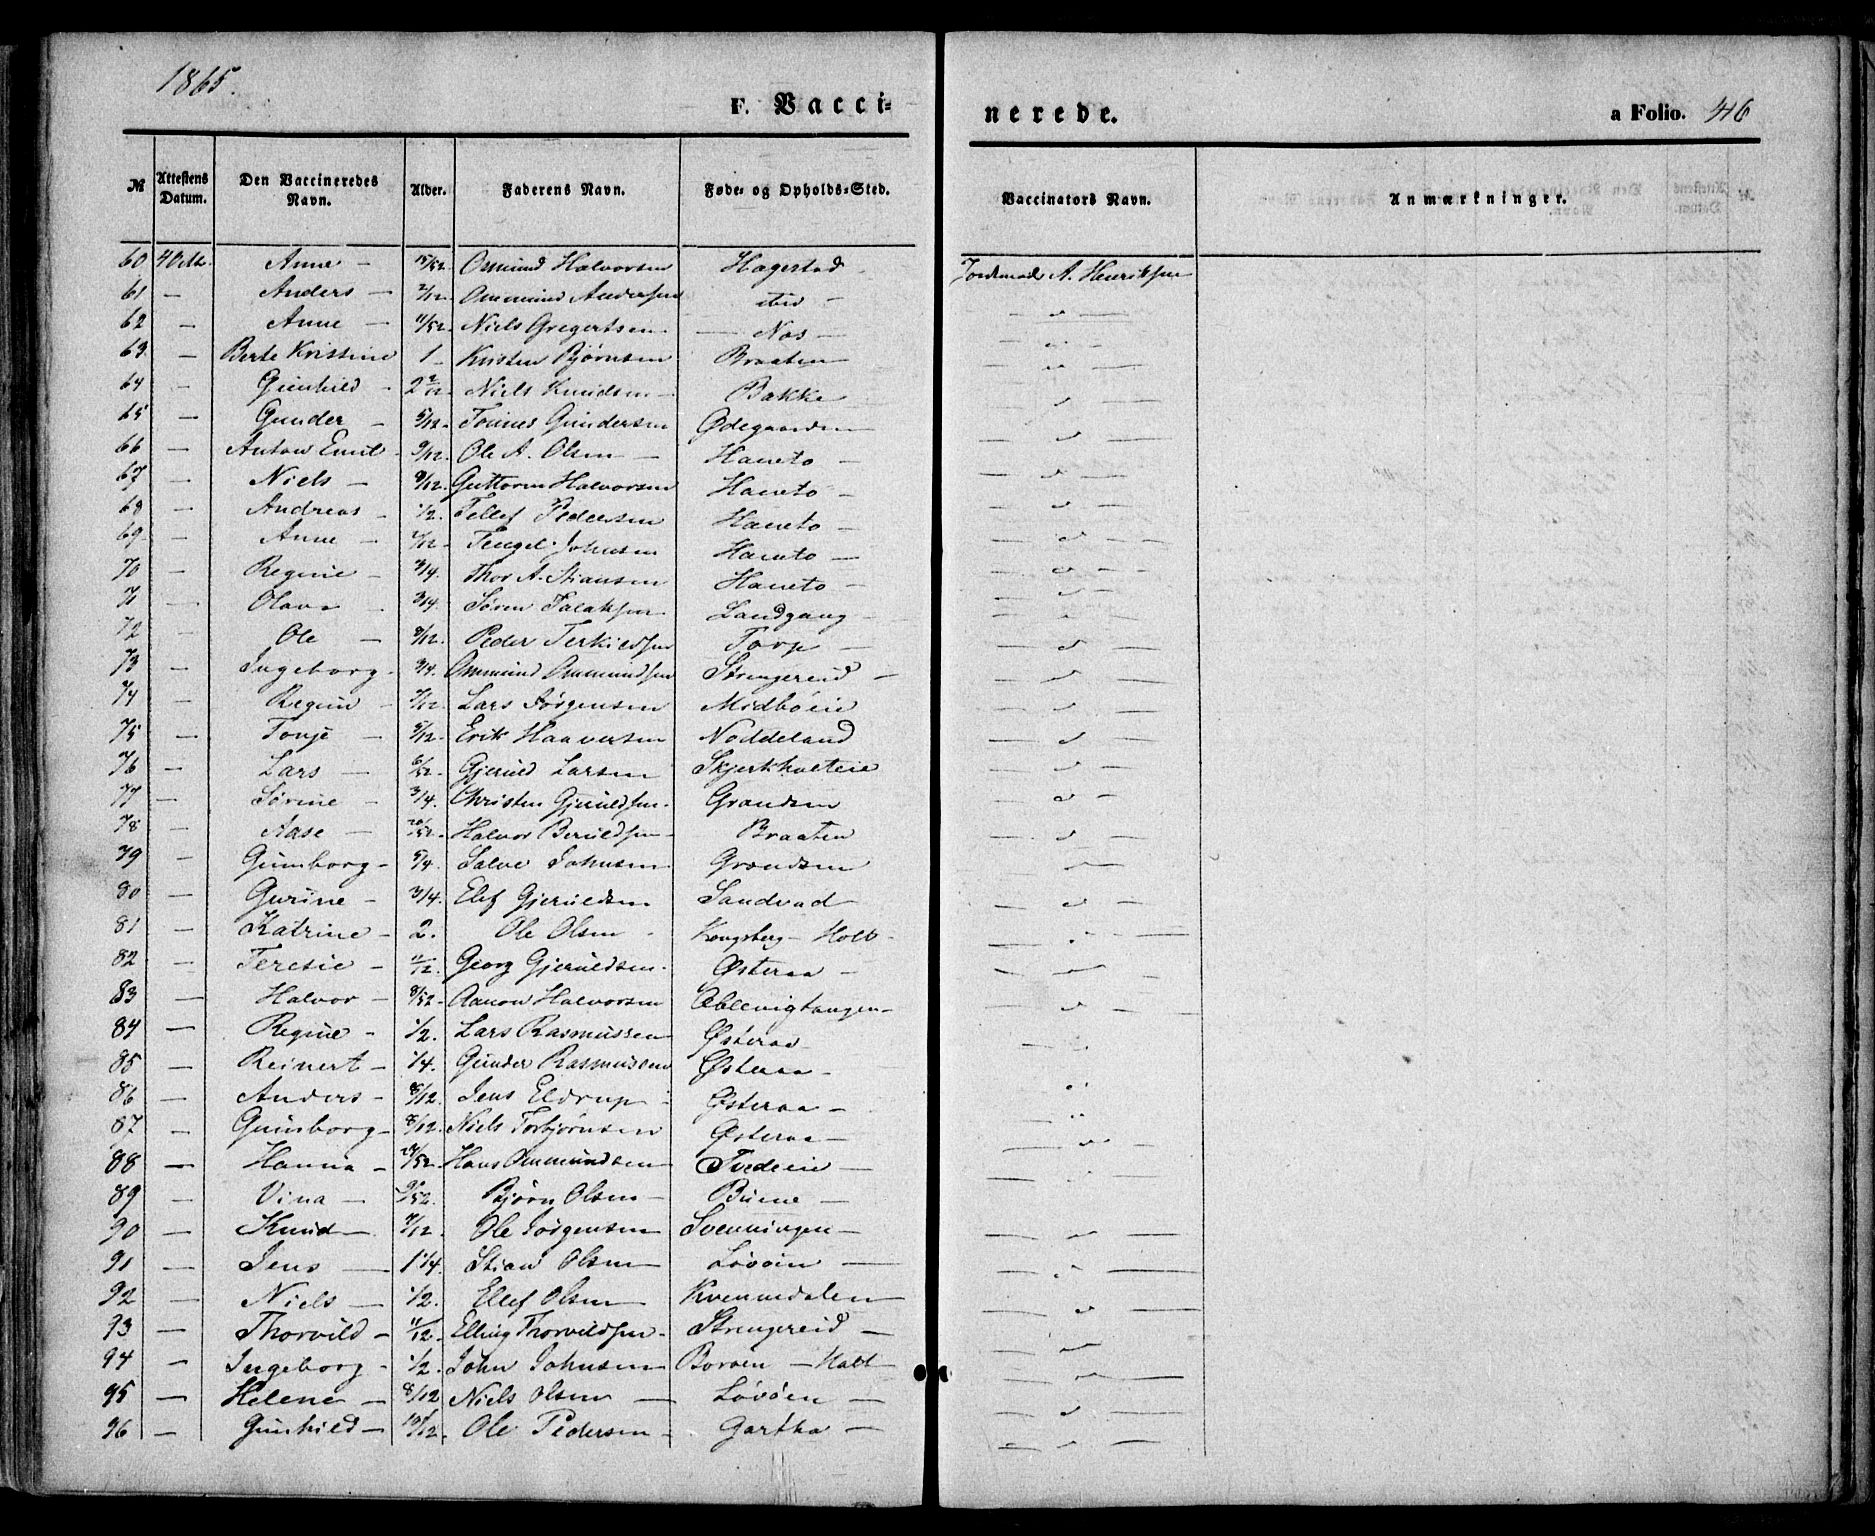 1865.
F. Vacci-
nerede.
a Folio. 46
№ Attestens Datum. Den Vaccineredes Navn. Alder. Faderens Navn. Føde- og Opholds-Sted. Vaccinators Navn. Anmærkninger.
60 4 Octb. Anne - 15/52. Osmund Halvorsen Hagestad - Jordemod. A. Henriksen
61 - Anders - 2/12. Ommund Andersen -
62 - Anne - 11/52. Niels Gregertsen - Nas -
63 - Berte Kristine 1 - Kristen Bjørnsen Braaten
64 - Gunhild - 2 Niels Knudsen - Bakke
65 - Gunder - 5/12. Tønnes Gundersen Ødegaarden
66 - Anton Emil - 9/12. Ole A. Olsen - Haneto -
67 - Niels - 9/12. Guttorm Halvorsen Haneto -
68 - Andreas - 1/2. Tellef Pedersen Haneto -
69 - Anne - Tengel Johnsen Haneto -
70 - Regine - 3/4. Thor A. Stiansen Haneto -
71 - Olava - 3/4. Søren Falaksen Landgang -
72 - Ole - 9/12. Peder Terkildsen Torp -
73 - Ingeborg - 3/4. Ommund Ommundsen Strengereid -
74 - Regine - 7/12. Lars Jørgensen Midbøeie
75 - Tonje - 5/12. Erik Haaversen Noddeland
76 - Lars - 6/52. Gjeruld Larsen Skjerkholteie
77 - Sørine - 3/4. Christen Gjeruldsen - Grandsen
78 - Aase - 20/52. Halvor Beruldsen - Braaten
79 - Gunborg - 5/4. Salve Johnsen Grændsen
80 - Gurine - 3/4. Elef Gjeruldsen Sandvad -
81 - Katrine - 2. Ole Olsen - Kongsberg - Holt -
82 - Teresie - 11/12. Georg Gjeruldsen - Østeraa -
83 - Halvor - 8/52. Aanon Halvorsen Eblevigtangen -
84 - Regine - 1/2. Lars Rasmussen Østeraa -
85 - Reinert - 1/4. Gunder Rasmussen Østeraa -
86 - Anders - 8/12. Jens Eldrup - Østeraa -
87 - Gunborg - 8/12. Niels Torbjørnsen Østeraa -
88 - Hanna - 24/52. Hans Ommundsen Tvedeeie -
89 - Vina - 9/52. Bjørn Olsen - Buene -
90 - Knud - 7/12. Ole Jørgensen Svenningen -
91 - Jens - 1 1/4. Stian Olsen Løvøen -
92 - Niels - 1/2. Ellef Olsen Kvennedalen
93 - Thorvild - 11/12. Elling Thorvildsen - Strengereid -
94 - Ingeborg - 1/2. John Johnsen Borøen - Holt
95 - Helene - 8/12 Niels Olsen - Løvøen -
96 - Gunhild - 10/12. Ole Pedersen - Gartha -